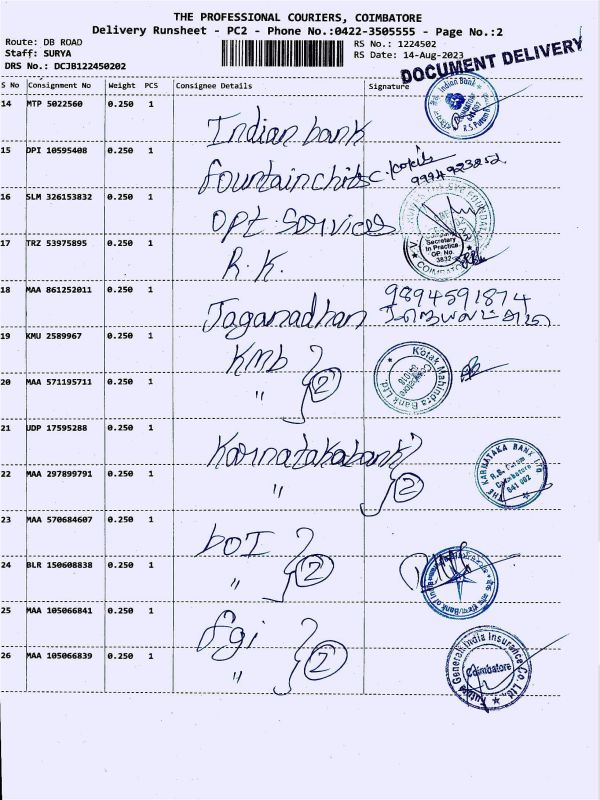 THE PROFESSIONAL COURIERS, COIMBATORE
Delivery Runsheet - PC2 - Phone No.:0422-3505555 - Page No.:2
Route: DB ROAD
Staff: SURYA
DRS No.: DCJB122450202
RS No.: 1224502
RS Date: 14-Aug-2023
DOCUMENT DELIVERY
S No Consignment No Weight PCS Consignee Details Signature
14 MTP 5022560 0.250 1 Indian bank
Indian Bank
15 DPI 10595408 0.250 1 fountain chits
16 SLM 326153832 0.250 1 Opt. Services
17 TRZ 53975895 0.250 1 R.K.
Secretary
In Practice
CP No.
3832
COIMBATORE
18 MAA 861252011 0.250 1 Jaganadhan 9894591874
19 KMU 2589967 0.250 1 Kmb
20 MAA 571195711 0.250 1 " 2
Kotak Mahindra Bank Ltd.
Coimbatore
21 UDP 17595288 0.250 1 Karnatakabank
22 MAA 297899791 0.250 1 " 2
THE KARNATAKA BANK LTD
R.S. Puram
Coimbatore
641 002
23 MAA 570684607 0.250 1 boI
24 BLR 150608838 0.250 1 " 2
Bank of India
25 MAA 105066841 0.250 1 fgi
26 MAA 105066839 0.250 1 " 2
Future Generali India Insurance Co. Ltd.
Coimbatore